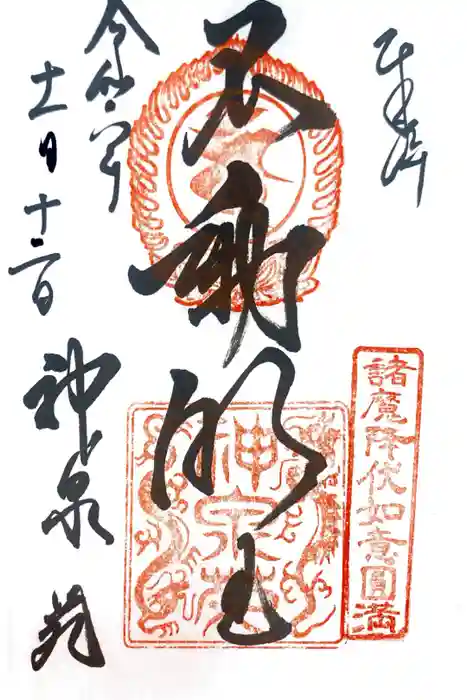 奉拝
諸魔降伏如意圓満
不動明王
神泉苑
令和二年
十一月十二日
神泉苑